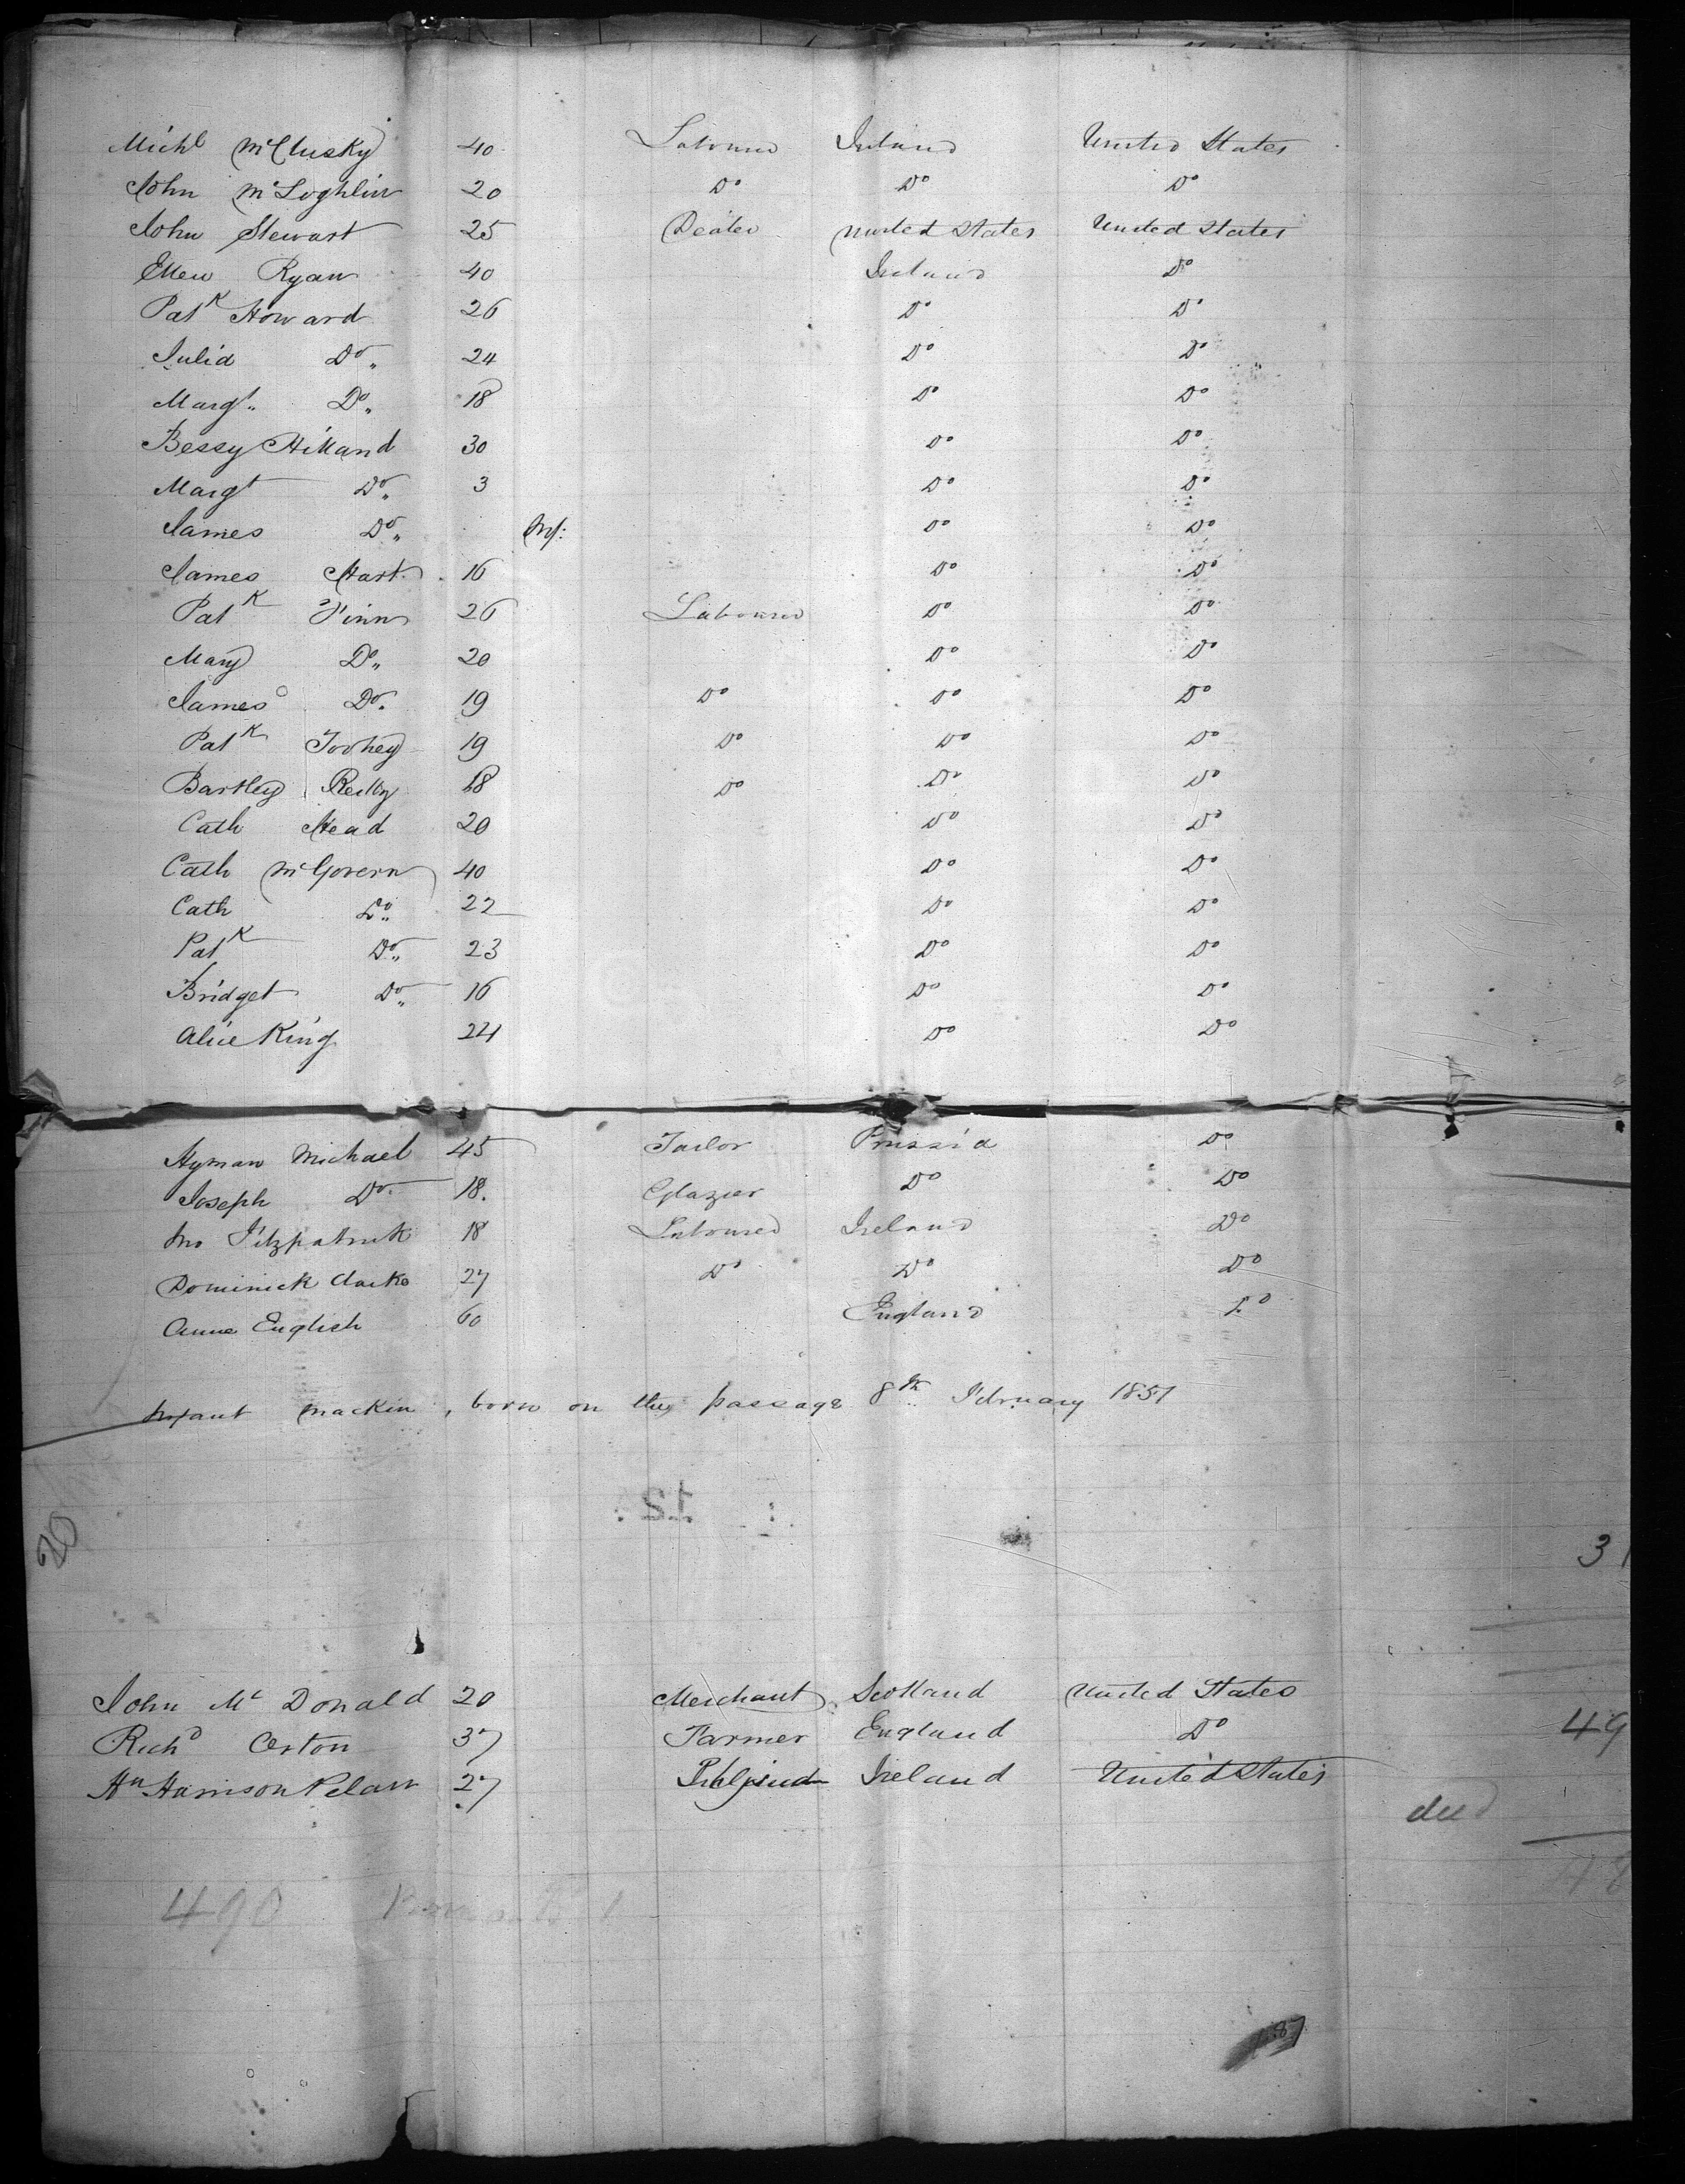 Michl McClusky 40 Labourer Ireland United States
John McLoghlin 20 Do Do Do
John Stewart 25 Dealer United States United States
Ellen Ryan 40 Ireland Do
Patk Howard 26 Do Do
Julia Do 24 Do Do
Margt Do 18 Do Do
Bessy Hilland 30 Do Do
Margt Do 3 Do Do
James Do Inf: Do Do
James Hart 16 Do Do
Patk Finn 26 Labourer Do Do
Mary Do 20 Do Do
James Do 19 Do Do Do
Patk Toohey 19 Do Do Do
Bartley Reilly 18 Do Do Do
Cath Head 20 Do Do
Cath McGovern 40 Do Do
Cath Do 22 Do Do
Patk Do 23 Do Do
Bridget Do 16 Do Do
Alice King 24 Do Do
Hyman Michael 45 Tailor Prussia Do
Joseph Do 18. Glazier Do Do
Jno Fitzpatrick 18 Labourer Ireland Do
Dominick Clarke 27 Do Do Do
Anne English 60 England Do
Infant Mackin, born on the passage 8th February 1851
12
20
31
John Mc Donald 20 Merchant Scotland United States
Richd 37 Farmer England Do
49
Harrison 27 Ireland United States
died
490